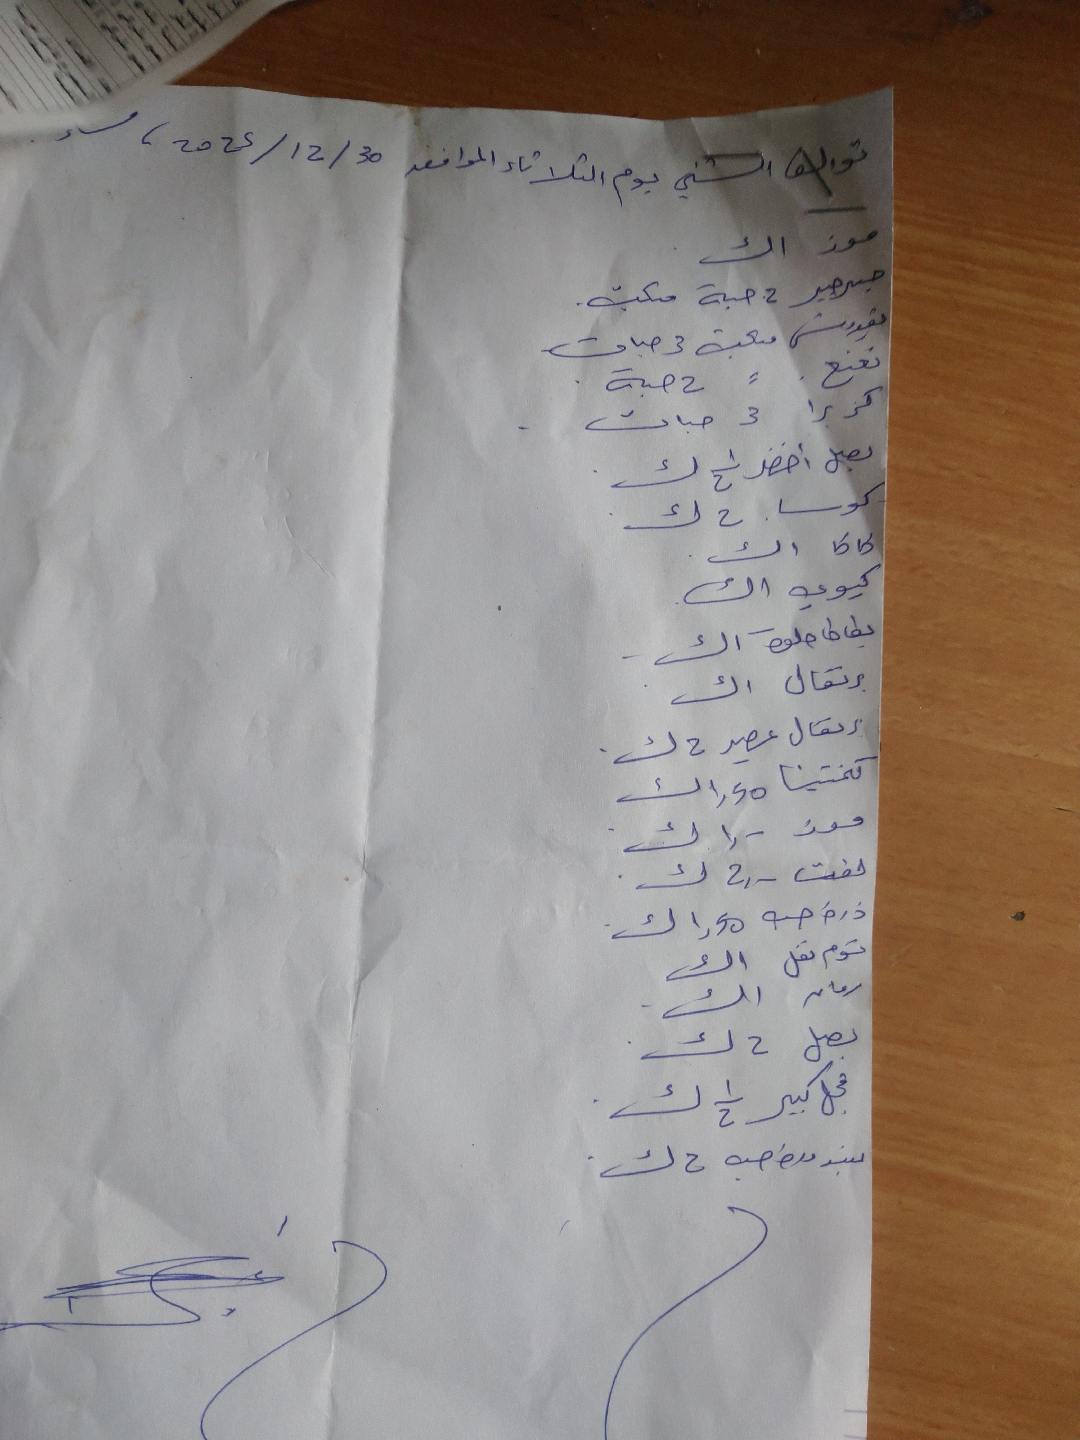 توالف الشني يوم الثلاثاء الموافق 30/12/2025 مساء
موز 1ك
جرجير 2 حبة مكبة
بقدونس مكبة 3 حبات
نعنع " 2 حبة
كزبرا 3 حبات
بصل أخضر 1/2 ك
كوسا 2 ك
كاكا 1ك
كيوي 1ك
بطاطا حلوة 1ك
برتقال 1ك
برتقال عصير 2 ك
كلمنتينا 1,50ك
موز 1,- ك
لفت 2,- ك
ذرة حبه 1,50 ك
توم نقل 1ك
رمان 1ك
بصل 2 ك
فجل كبير 1/2 ك
بندورة حبه 2 ك